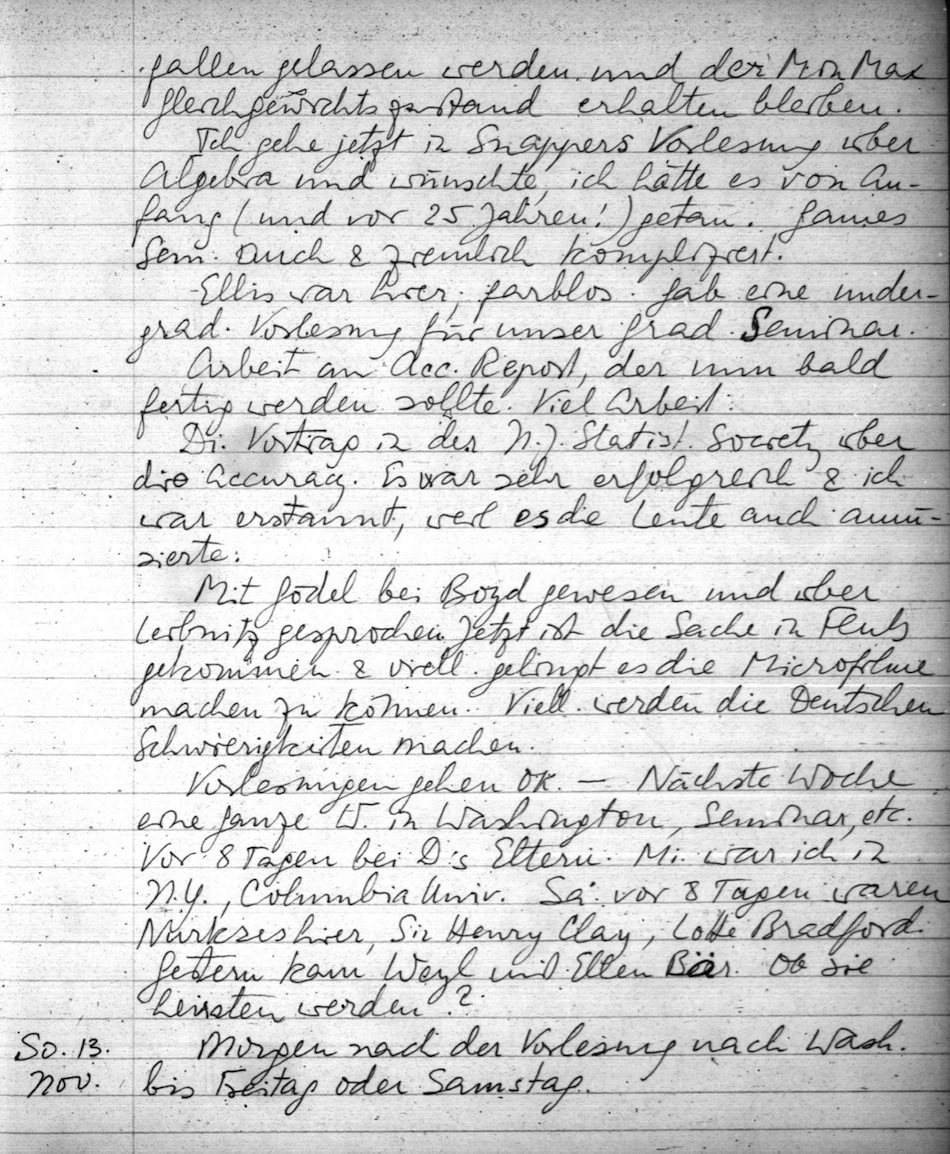 fallen gelassen werden und der Min Max
Gleichgewichtszustand erhalten bleiben.
Ich gehe jetzt in Snappers Vorlesung über
Algebra und wünschte, ich hätte es von An-
fang (und vor 25 Jahren!) getan. Games
Sem. auch & ziemlich kompliziert.
Ellis war hier, farblos. Gab eine under-
grad. Vorlesung für unser Grad. Seminar.
Arbeit am Acc. Report, der nun bald
fertig werden sollte. Viel Arbeit.
Di. Vortrag in der N.J. Statist. Society über
die Accuracy. Es war sehr erfolgreich & ich
war erstaunt, weil es die Leute auch amü-
sierte.
Mit Gödel bei Boyd gewesen und über
Leibnitz gesprochen. Jetzt ist die Sache in Fluss
gekommen & viell. gelingt es die Microfilme
machen zu können. Viell. werden die Deutschen
Schwierigkeiten machen.
Vorlesungen gehen OK. — Nächste Woche
eine ganze W. in Washington, Seminar, etc.
Vor 8 Tagen bei D's Eltern. Mi. war ich in
N.Y., Columbia Univ. Sa. vor 8 Tagen waren
Nurkses hier, Sir Henry Clay, Lotte Bradford.
Gestern kam Weyl mit Ellen Bär. Ob sie
heiraten werden?
So. 13. Morgen nach der Vorlesung nach Wash.
Nov. bis Freitag oder Samstag.